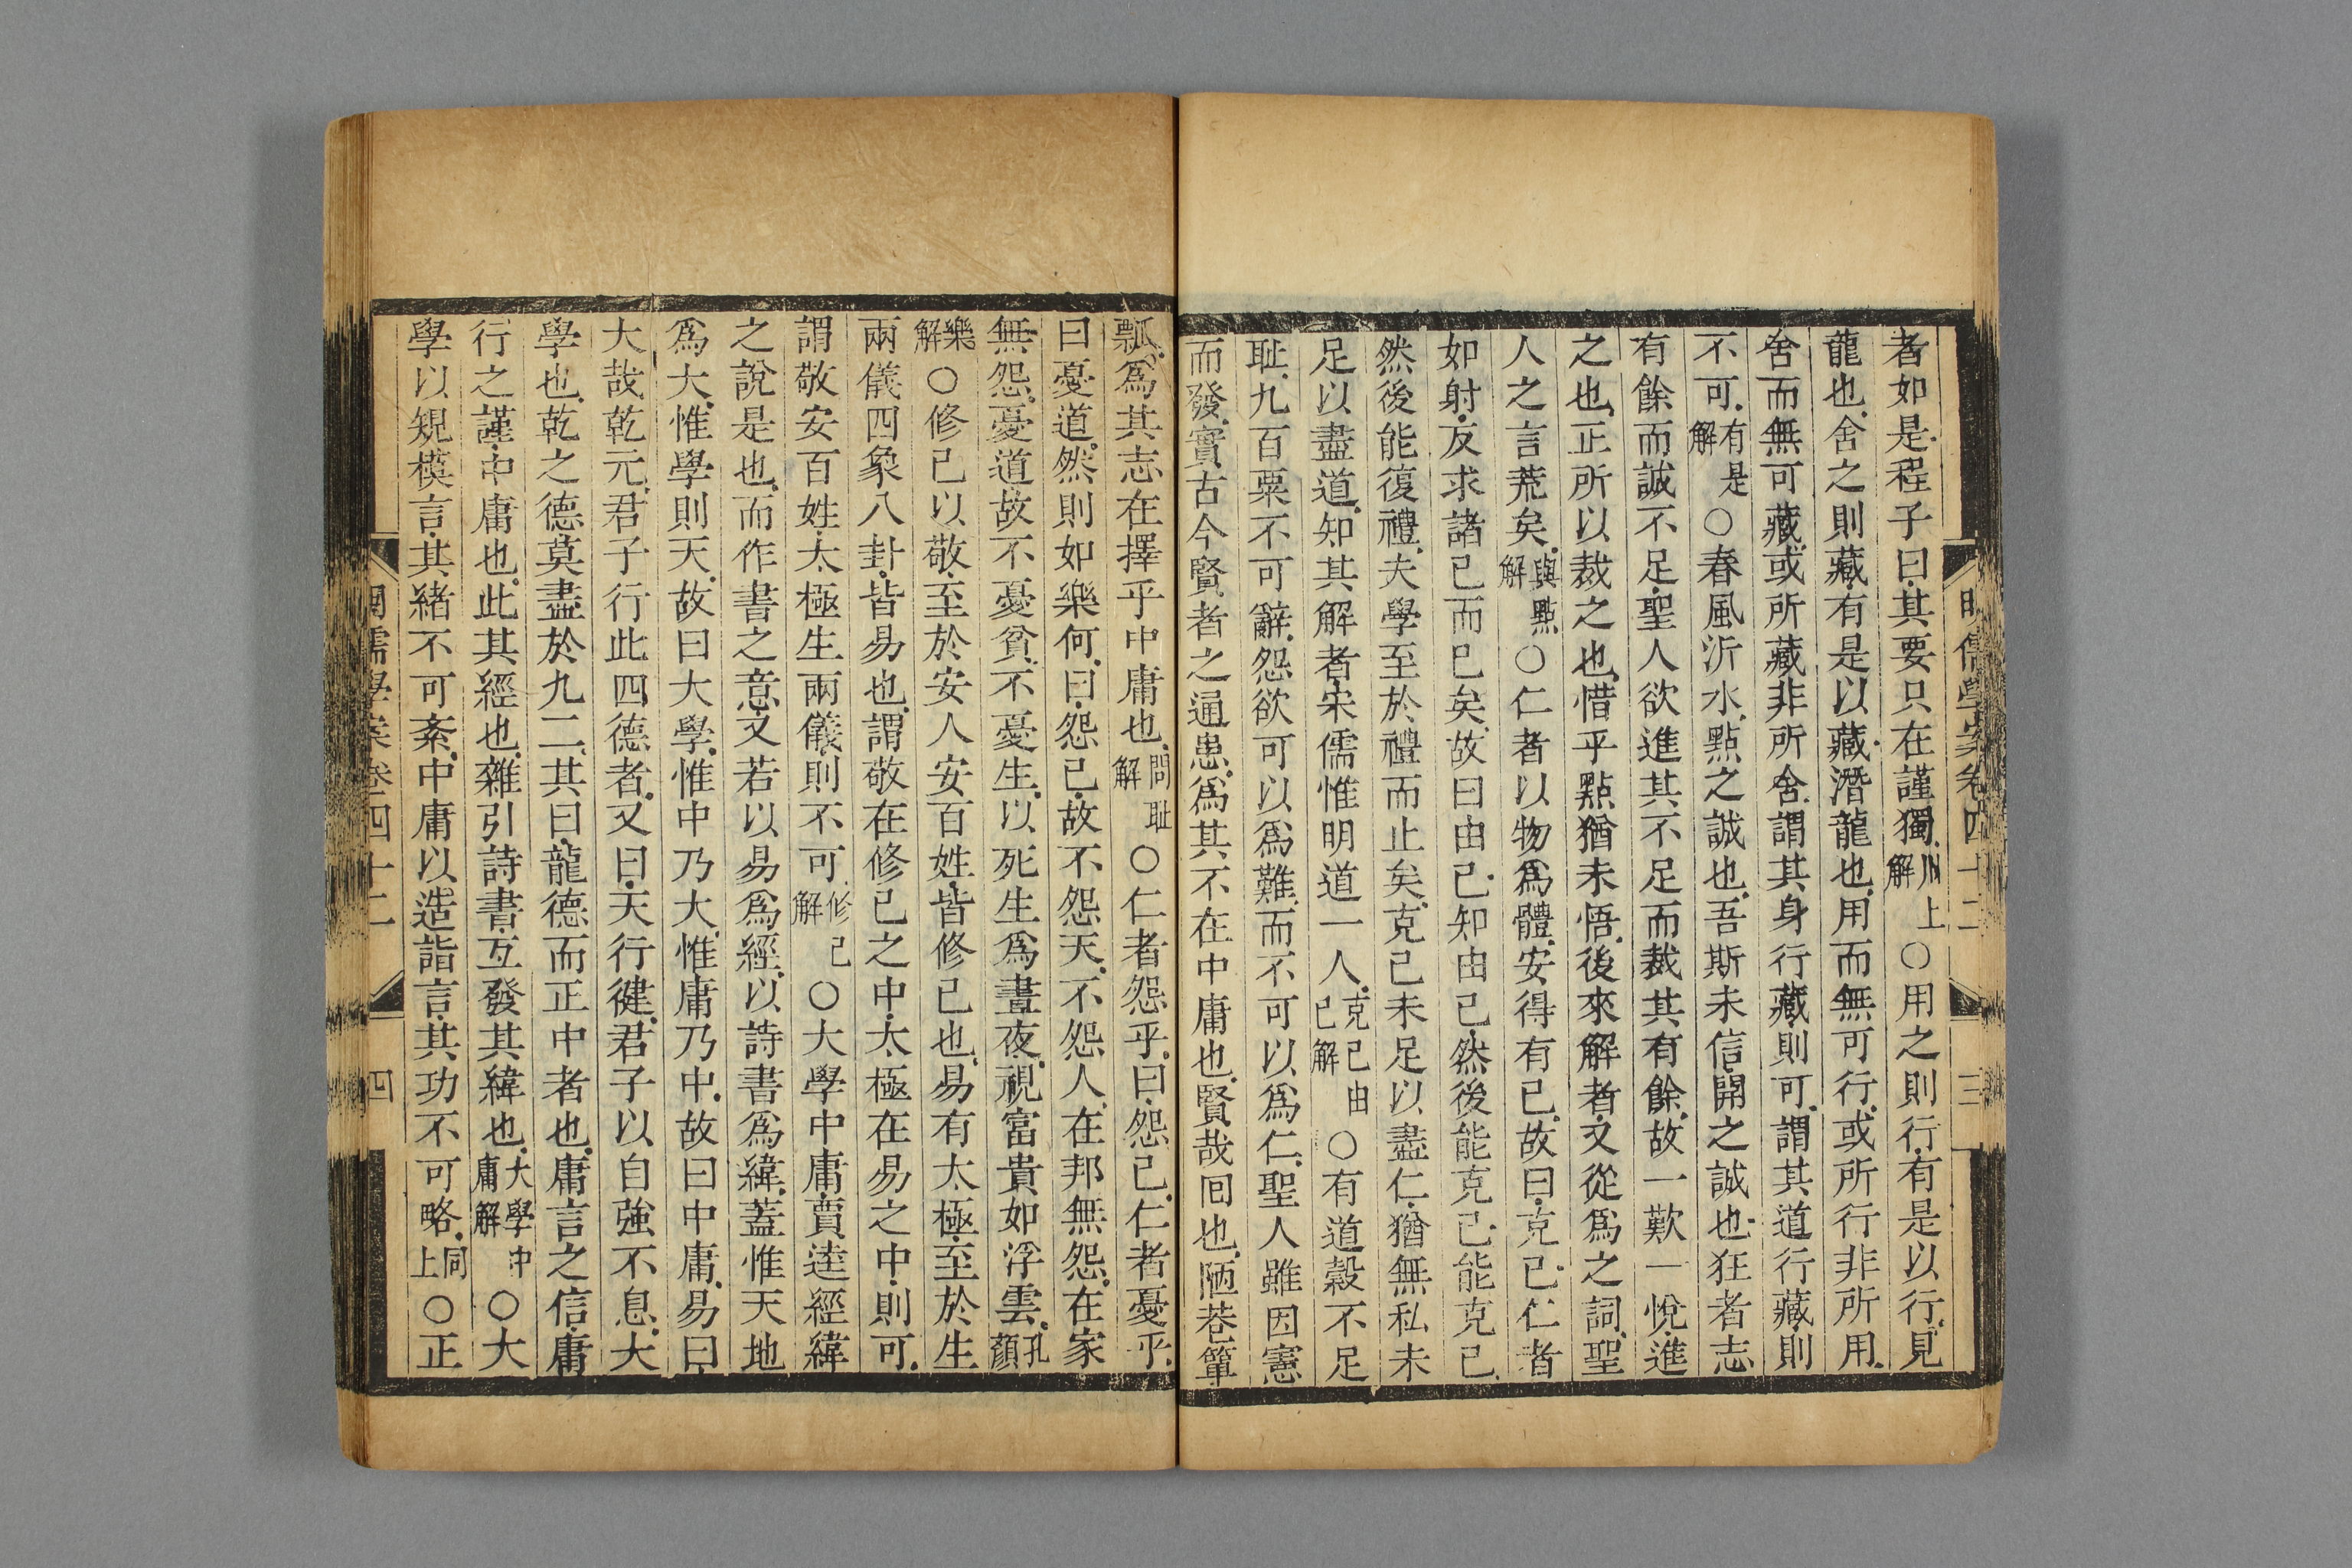 明儒學案卷四十二
三
者如是程子曰其要只在謹獨川上解○用之則行有是以行見
龍也舍之則藏有是以藏潛龍也用而無可行或所行非所用
舍而無可藏或所藏非所舍謂其身行藏則可謂其道行藏則
不可有是解○春風沂水點之誠也吾斯未信開之誠也狂者志
有餘而誠不足聖人欲進其不足而裁其有餘故一歎一悅進
之也正所以裁之也惜乎點猶未悟後來解者又從爲之詞聖
人之言荒矣與點解○仁者以物爲體安得有已故曰克已仁者
如射反求諸已而已矣故曰由已知由已然後能克已能克已
然後能復禮夫學至於禮而止矣克已未足以盡仁猶無私未
足以盡道知其解者宋儒惟明道一人克已由已解○有道穀不足
耻九百粟不可辭怨欲可以爲難而不可以爲仁聖人雖因憲
而發實古今賢者之通患爲其不在中庸也賢哉囘也陋巷簞
瓢爲其志在擇乎中庸也問耻解○仁者怨乎曰怨已仁者憂乎
曰憂道然則如樂何曰怨已故不怨天不怨人在邦無怨在家
無怨憂道故不憂貧不憂生以死生爲晝夜視富貴如浮雲孔顏
樂解○修已以敬至於安人安百姓皆修已也易有太極至於生
兩儀四象八卦皆易也謂敬在修已之中太極在易之中則可
謂敬安百姓太極生兩儀則不可修已解○大學中庸賈逵經緯
之說是也而作書之意又若以易爲經以詩書爲緯蓋惟天地
爲大惟學則天故曰大學惟中乃大惟庸乃中故曰中庸易曰
大哉乾元君子行此四德者又曰天行健君子以自強不息大
學也乾之德莫盡於九二其曰龍德而正中者也庸言之信庸
行之謹中庸也此其經也雜引詩書互發其緯也大學中庸解○大
學以規模言其緒不可紊中庸以造詣言其功不可略同上○正
明儒學案卷四十二
四